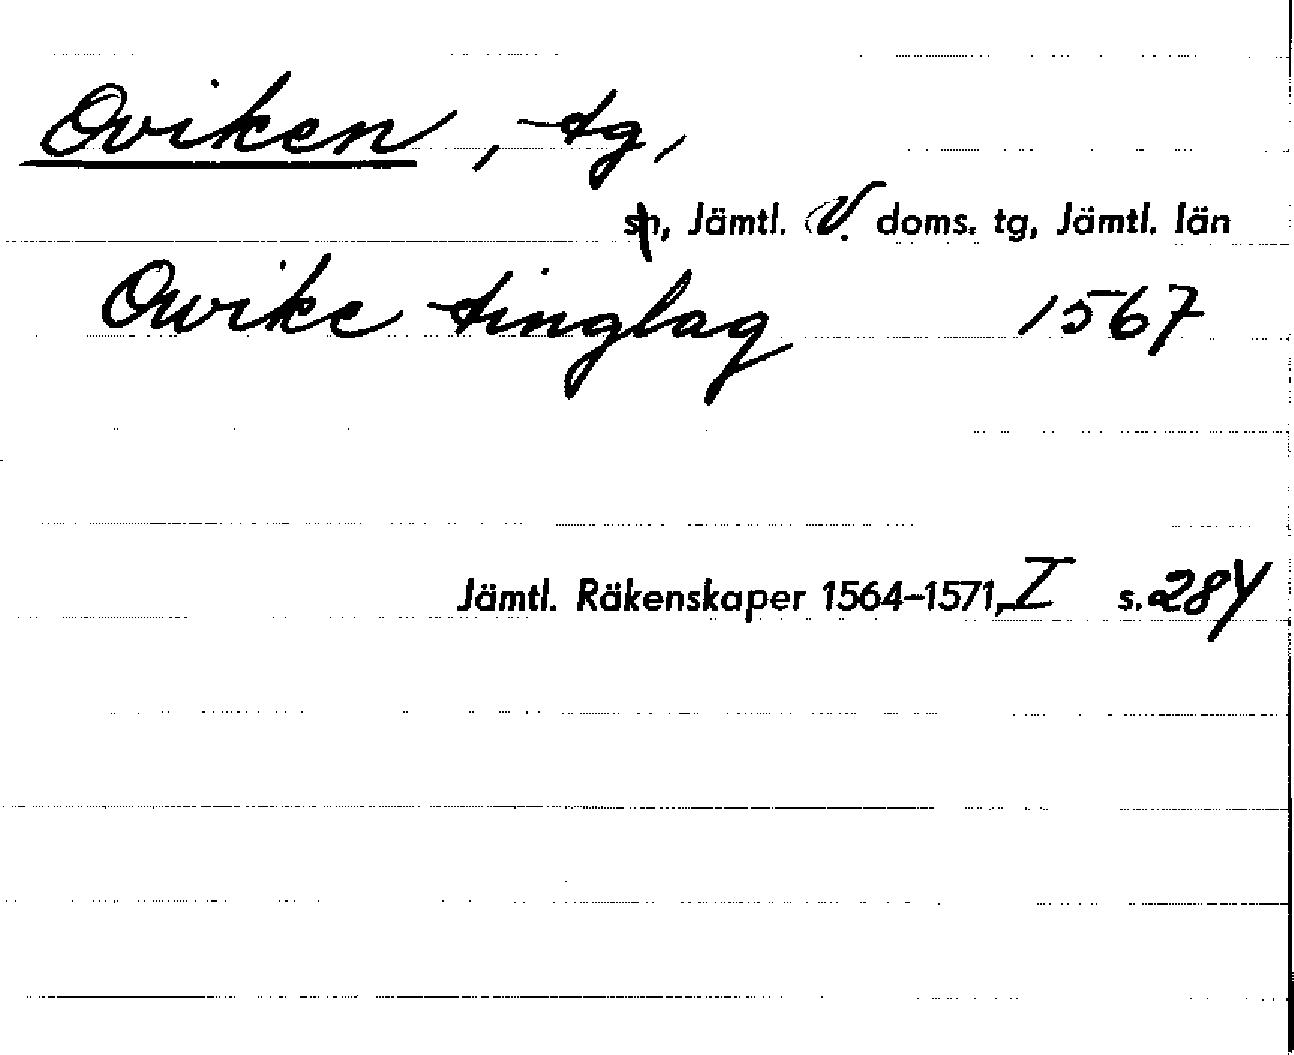 Oviken, tg,
sn, Jämtl. V. doms. tg, Jämtl. län
Owike tinglag 1567
Jämtl. Räkenskaper 1564-1571, I s. 284